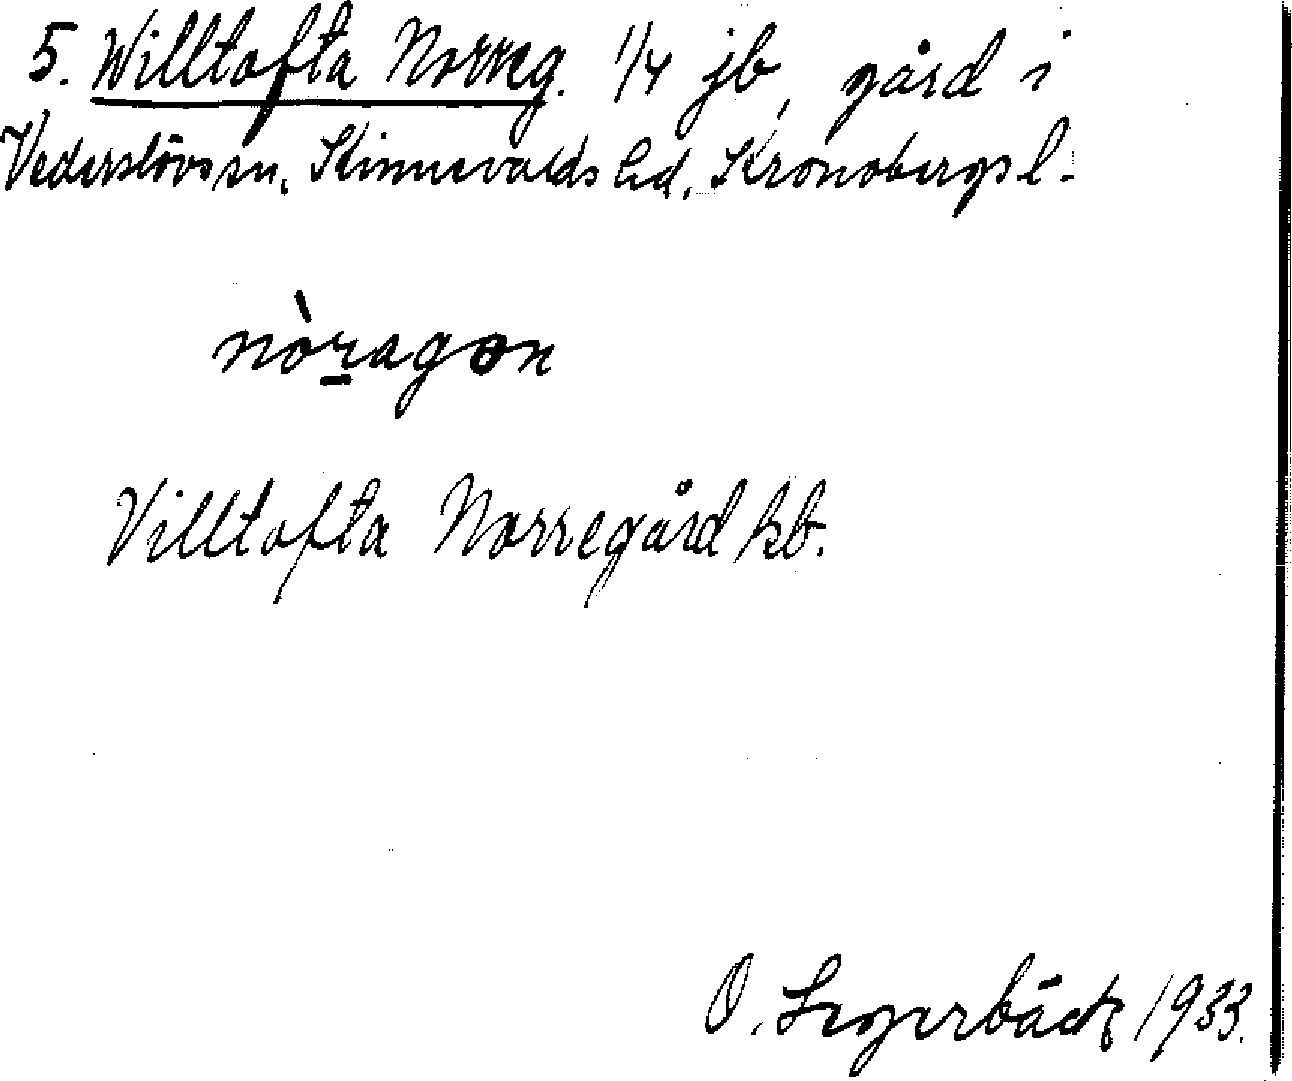 5. Willtofta Norreg. 1/4 jb, gård i
Vederslövs sn, Kinnevalds hd, Kronobergs l.
nòr̲agon
Villtofta Norregård kb.
O. Segerbäck 1933.